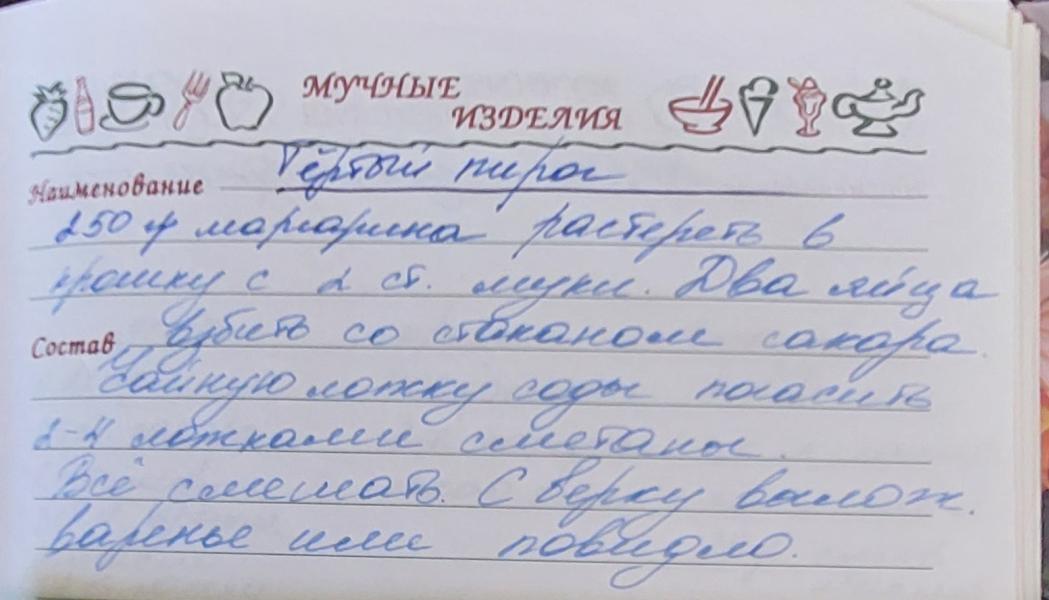 МУЧНЫЕ
ИЗДЕЛИЯ
Наименование Тёртый пирог
250 гр маргарина растереть в
крошку с 2 ст. муки. Два яйца
Состав взбить со стаканом сахара.
Чайную ложку соды погасить
2-4 ложками сметаны.
Всё смешать. Сверху вылож.
варенье или повидло.